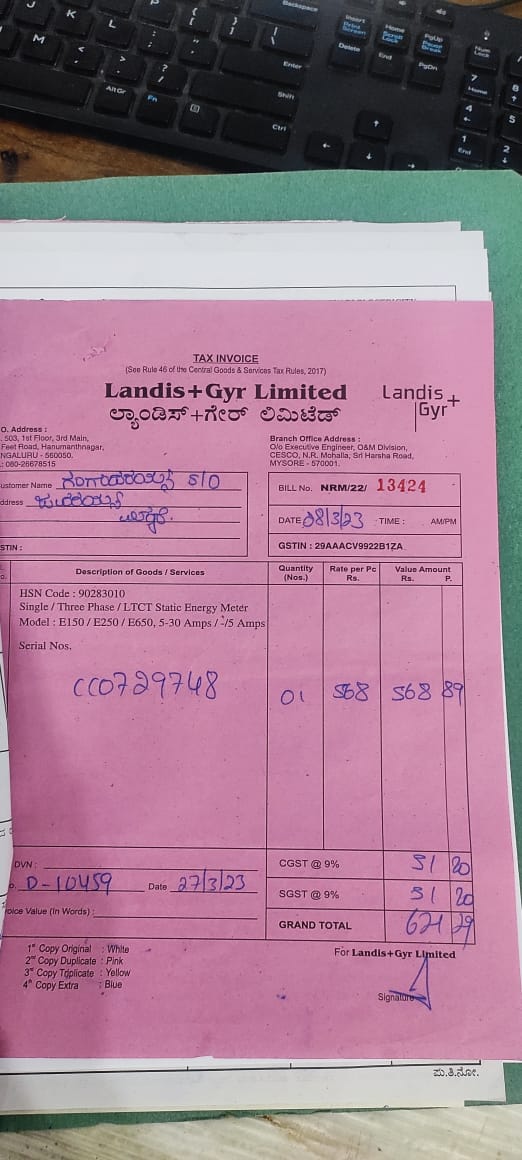 TAX INVOICE
(See Rule 46 of the Central Goods & Services Tax Rules, 2017)
Landis+Gyr Limited
ಲ್ಯಾಂಡಿಸ್+ಗೇರ್ ಲಿಮಿಟೆಡ್
Landis+
Gyr
O. Address :
503, 1st Floor, 3rd Main,
Feet Road, Hanumanthnagar,
NGALURU - 560050.
.: 080-26678515
Branch Office Address :
O/o Executive Engineer, O&M Division,
CESCO, N.R. Mohalla, Sri Harsha Road,
MYSORE - 570001.
ustomer Name S/O
ddress
STIN :
BILL No. NRM/22/ 13424
DATE 08/3/23 TIME : AM/PM
GSTIN : 29AAACV9922B1ZA
Description of Goods / Services Quantity (Nos.) Rate per Pc Rs. Value Amount Rs. P.
HSN Code : 90283010
Single / Three Phase / LTCT Static Energy Meter
Model : E150 / E250 / E650, 5-30 Amps / -/5 Amps
Serial Nos.
CC0729748 01 568 568 89
DVN :
D-10459 Date 27/3/23
oice Value (In Words) :
CGST @ 9% 51 20
SGST @ 9% 51 20
GRAND TOTAL 671 29
1st Copy Original : White
2nd Copy Duplicate : Pink
3rd Copy Triplicate : Yellow
4th Copy Extra : Blue
For Landis+Gyr Limited
Signature
ಪು.ತಿ.ನೋ.